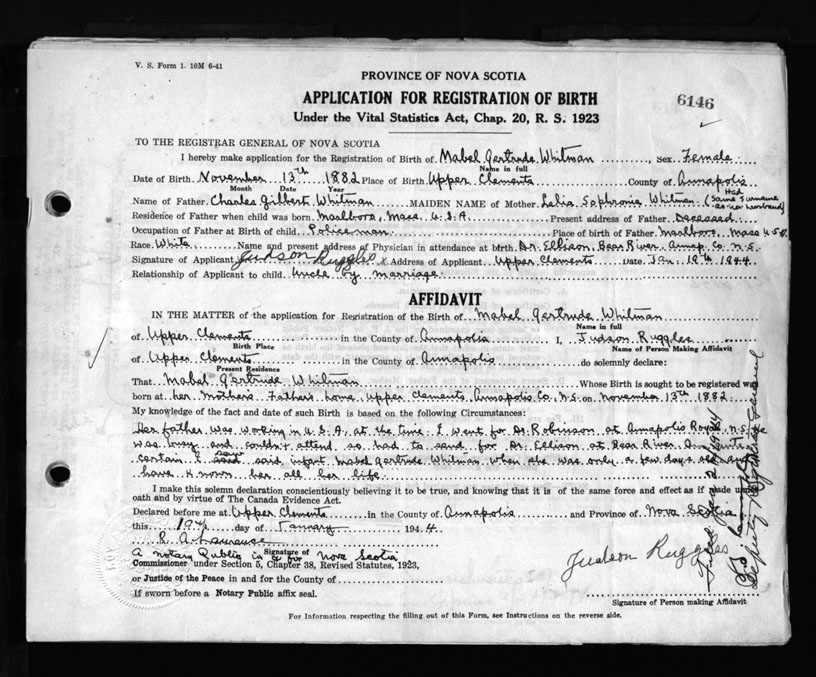 V. S. Form 1. 10M 6-41
PROVINCE OF NOVA SCOTIA
6146
APPLICATION FOR REGISTRATION OF BIRTH
Under the Vital Statistics Act, Chap. 20, R. S. 1923
TO THE REGISTRAR GENERAL OF NOVA SCOTIA
I hereby make application for the Registration of Birth of Mabel Gertrude Whitman, Sex Female
Name in full
Date of Birth November 13th 1882 Place of Birth Upper Clements County of Annapolis
Month Date Year
Name of Father Charles Gilbert Whitman MAIDEN NAME of Mother Lelia Sophronia Whitman (Had same surname as her husband)
Residence of Father when child was born Marlboro, Mass. U.S.A. Present address of Father Deceased
Occupation of Father at Birth of child Policeman Place of birth of Father Marlboro, Mass U.S.A.
Race White Name and present address of Physician in attendance at birth Dr. Ellison, Bear River, Annap. Co. N.S.
Signature of Applicant Judson Ruggles x Address of Applicant Upper Clements Date Jan. 19th 1944
Relationship of Applicant to child Uncle by marriage
AFFIDAVIT
IN THE MATTER of the application for Registration of the Birth of Mabel Gertrude Whitman
Name in full
of Upper Clements in the County of Annapolis I, Judson Ruggles
Birth Place Name of Person Making Affidavit
of Upper Clements in the County of Annapolis do solemnly declare:
Present Residence
That Mabel Gertrude Whitman Whose Birth is sought to be registered was
born at her Mother's Father's home, Upper Clements, Annapolis Co., N.S. on November 13th 1882
My knowledge of the fact and date of such Birth is based on the following Circumstances:
Her father was working in U.S.A. at the time. I went for Dr. Robinson at Annapolis Royal N.S. He
was busy and couldn't attend so had to send for Dr. Ellison at Bear River.
certain I saw said infant Mabel Gertrude Whitman when she was only a few days old and
have known her all her life
I make this solemn declaration conscientiously believing it to be true, and knowing that it is of the same force and effect as if made under
oath and by virtue of The Canada Evidence Act.
Declared before me at Upper Clements in the County of Annapolis and Province of Nova Scotia
this 19th day of January 1944
A Notary Public in & for Nova Scotia
Signature of
Commissioner under Section 5, Chapter 38, Revised Statutes, 1923,
or Justice of the Peace in and for the County of
If sworn before a Notary Public affix seal.
Judson Ruggles
Signature of Person making Affidavit
For Information respecting the filling out of this Form, see Instructions on the reverse side.
Filed
Deputy Registrar General